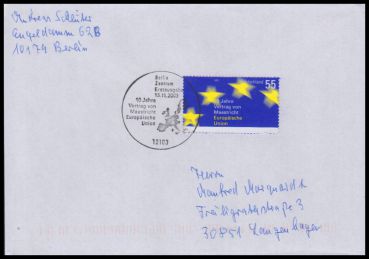 Andreas Schlüter
Engeldamm 62B
10179 Berlin
Berlin
Zentrum
Erstausgabe
13.11.2003
10 Jahre
Vertrag von
Maastricht
Europäische
Union
12103
Deutschland 55
10 Jahre
Vertrag von
Maastricht
Europäische
Union
Herrn
Manfred Marquardt
Freiligrathstraße 3
30851 Langenhagen